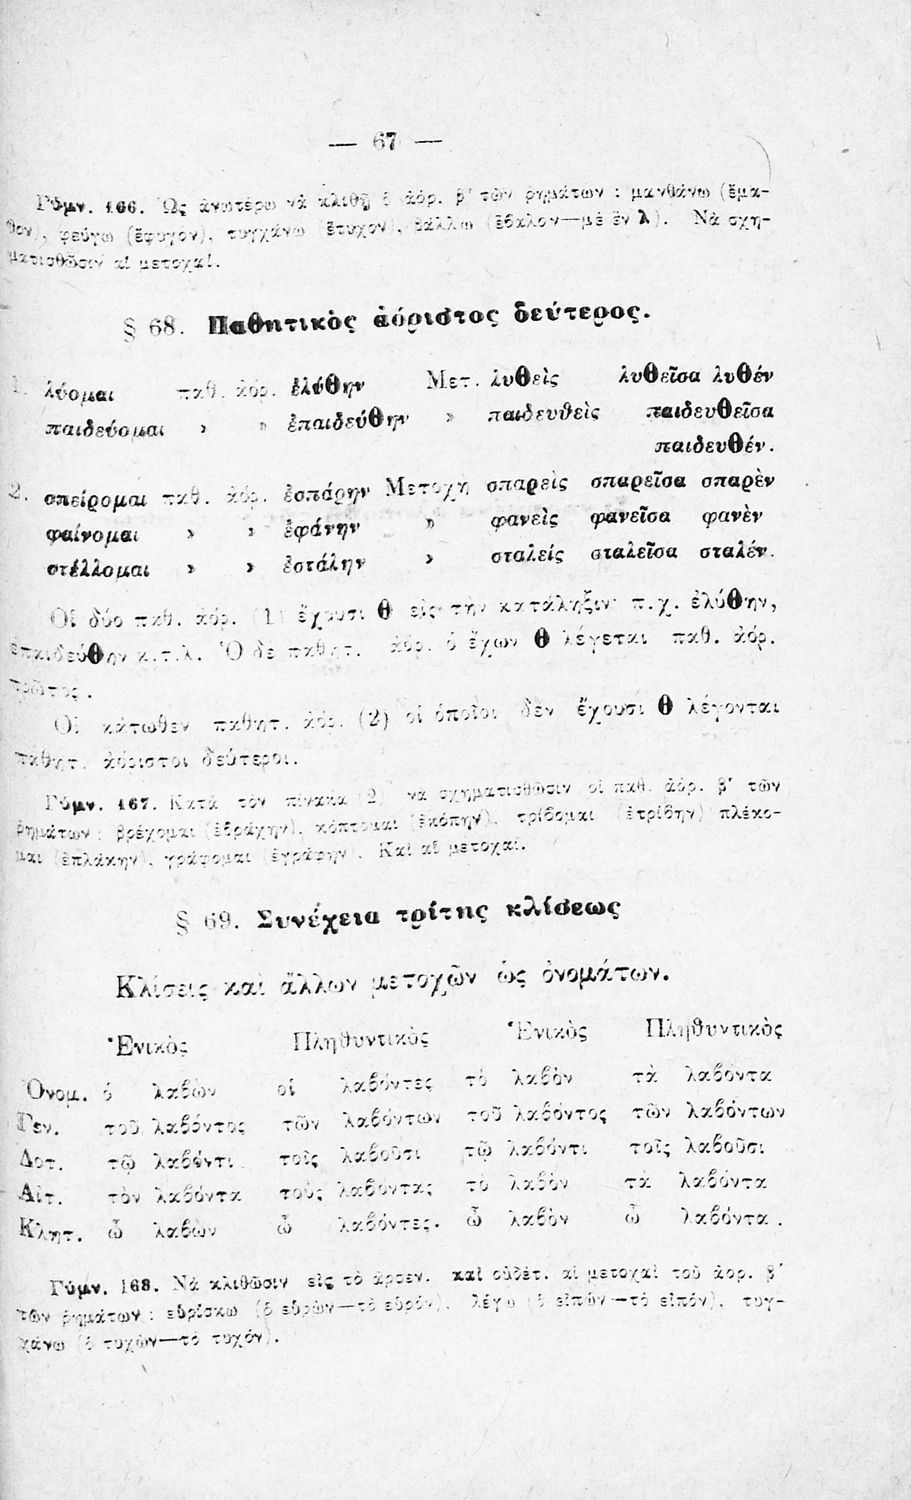 — 67 —
Γύμν. 166. Ὡς ἀνωτέρω νὰ κλιθῇ ὁ ἀόρ. β′ τῶν ῥημάτων : μανθάνω (ἔμα-
θον), φεύγω (ἔφυγον), τυγχάνω (ἔτυχον), βάλλω (ἔβαλον—μὲ ἓν λ). Νὰ σχη-
ματισθῶσιν αἱ μετοχαί.
§ 68. Παθητικὸς ἀόριστος δεύτερος.
1. λύομαι παθ. ἀόρ. ἐλύθην Μετ. λυθεὶς λυθεῖσα λυθέν
παιδεύομαι » » ἐπαιδεύθην » παιδευθεὶς παιδευθεῖσα
παιδευθέν.
2. σπείρομαι παθ. ἀόρ. ἐσπάρην Μετοχὴ σπαρεὶς σπαρεῖσα σπαρὲν
φαίνομαι » » ἐφάνην » φανεὶς φανεῖσα φανὲν
στέλλομαι » » ἐστάλην » σταλείς σταλεῖσα σταλέν.
Οἱ δύο παθ. ἀόρ. (1) ἔχουσι Θ εἰς τὴν κατάληξιν· π.χ. ἐλύθην,
ἐπαιδεύθην κ.τ.λ. Ὁ δὲ παθητ. ἀόρ. ὁ ἔχων Θ λέγεται παθ. ἀόρ.
πρῶτος.
Οἱ κάτωθεν παθητ. ἀόρ. (2) οἱ ὁποῖοι δὲν ἔχουσι Θ λέγονται
παθητ. ἀόριστοι δεύτεροι.
Γύμν. 167. Κατὰ τὸν πίνακα (2) νὰ σχηματισθῶσιν οἱ παθ. ἀόρ. β′ τῶν
ῥημάτων : βρέχομαι (ἐβράχην), κόπτομαι (ἐκόπην), τρίβομαι (ἐτρίβην) πλέκο-
μαι (ἐπλάκην), γράφομαι (ἐγράφην). Καὶ αἱ μετοχαί.
§ 69. Συνέχεια τρίτης κλίσεως
Κλίσεις καὶ ἄλλων μετοχῶν ὡς ὀνομάτων.
Ἑνικὸς Πληθυντικὸς Ἑνικὸς Πληθυντικὸς
Ὀνομ. ὁ λαβὼν οἱ λαβόντες τὸ λαβὸν τὰ λαβόντα
Γεν. τοῦ λαβόντος τῶν λαβόντων τοῦ λαβόντος τῶν λαβόντων
Δοτ. τῷ λαβόντι τοῖς λαβοῦσι τῷ λαβόντι τοῖς λαβοῦσι
Αἰτ. τὸν λαβόντα τοὺς λαβόντας τὸ λαβὸν τὰ λαβόντα
Κλητ. ὦ λαβὼν ὦ λαβόντες. ὦ λαβὸν ὦ λαβόντα.
Γύμν. 168. Νὰ κλιθῶσιν εἰς τὸ ἀρσεν. καὶ οὐδέτ. αἱ μετοχαὶ τοῦ ἀορ. β′
τῶν ῥημάτων : εὑρίσκω (ὁ εὑρὼν—τὸ εὑρόν), λέγω (ὁ εἰπὼν—τὸ εἰπόν), τυγ-
χάνω (ὁ τυχὼν—τὸ τυχόν).